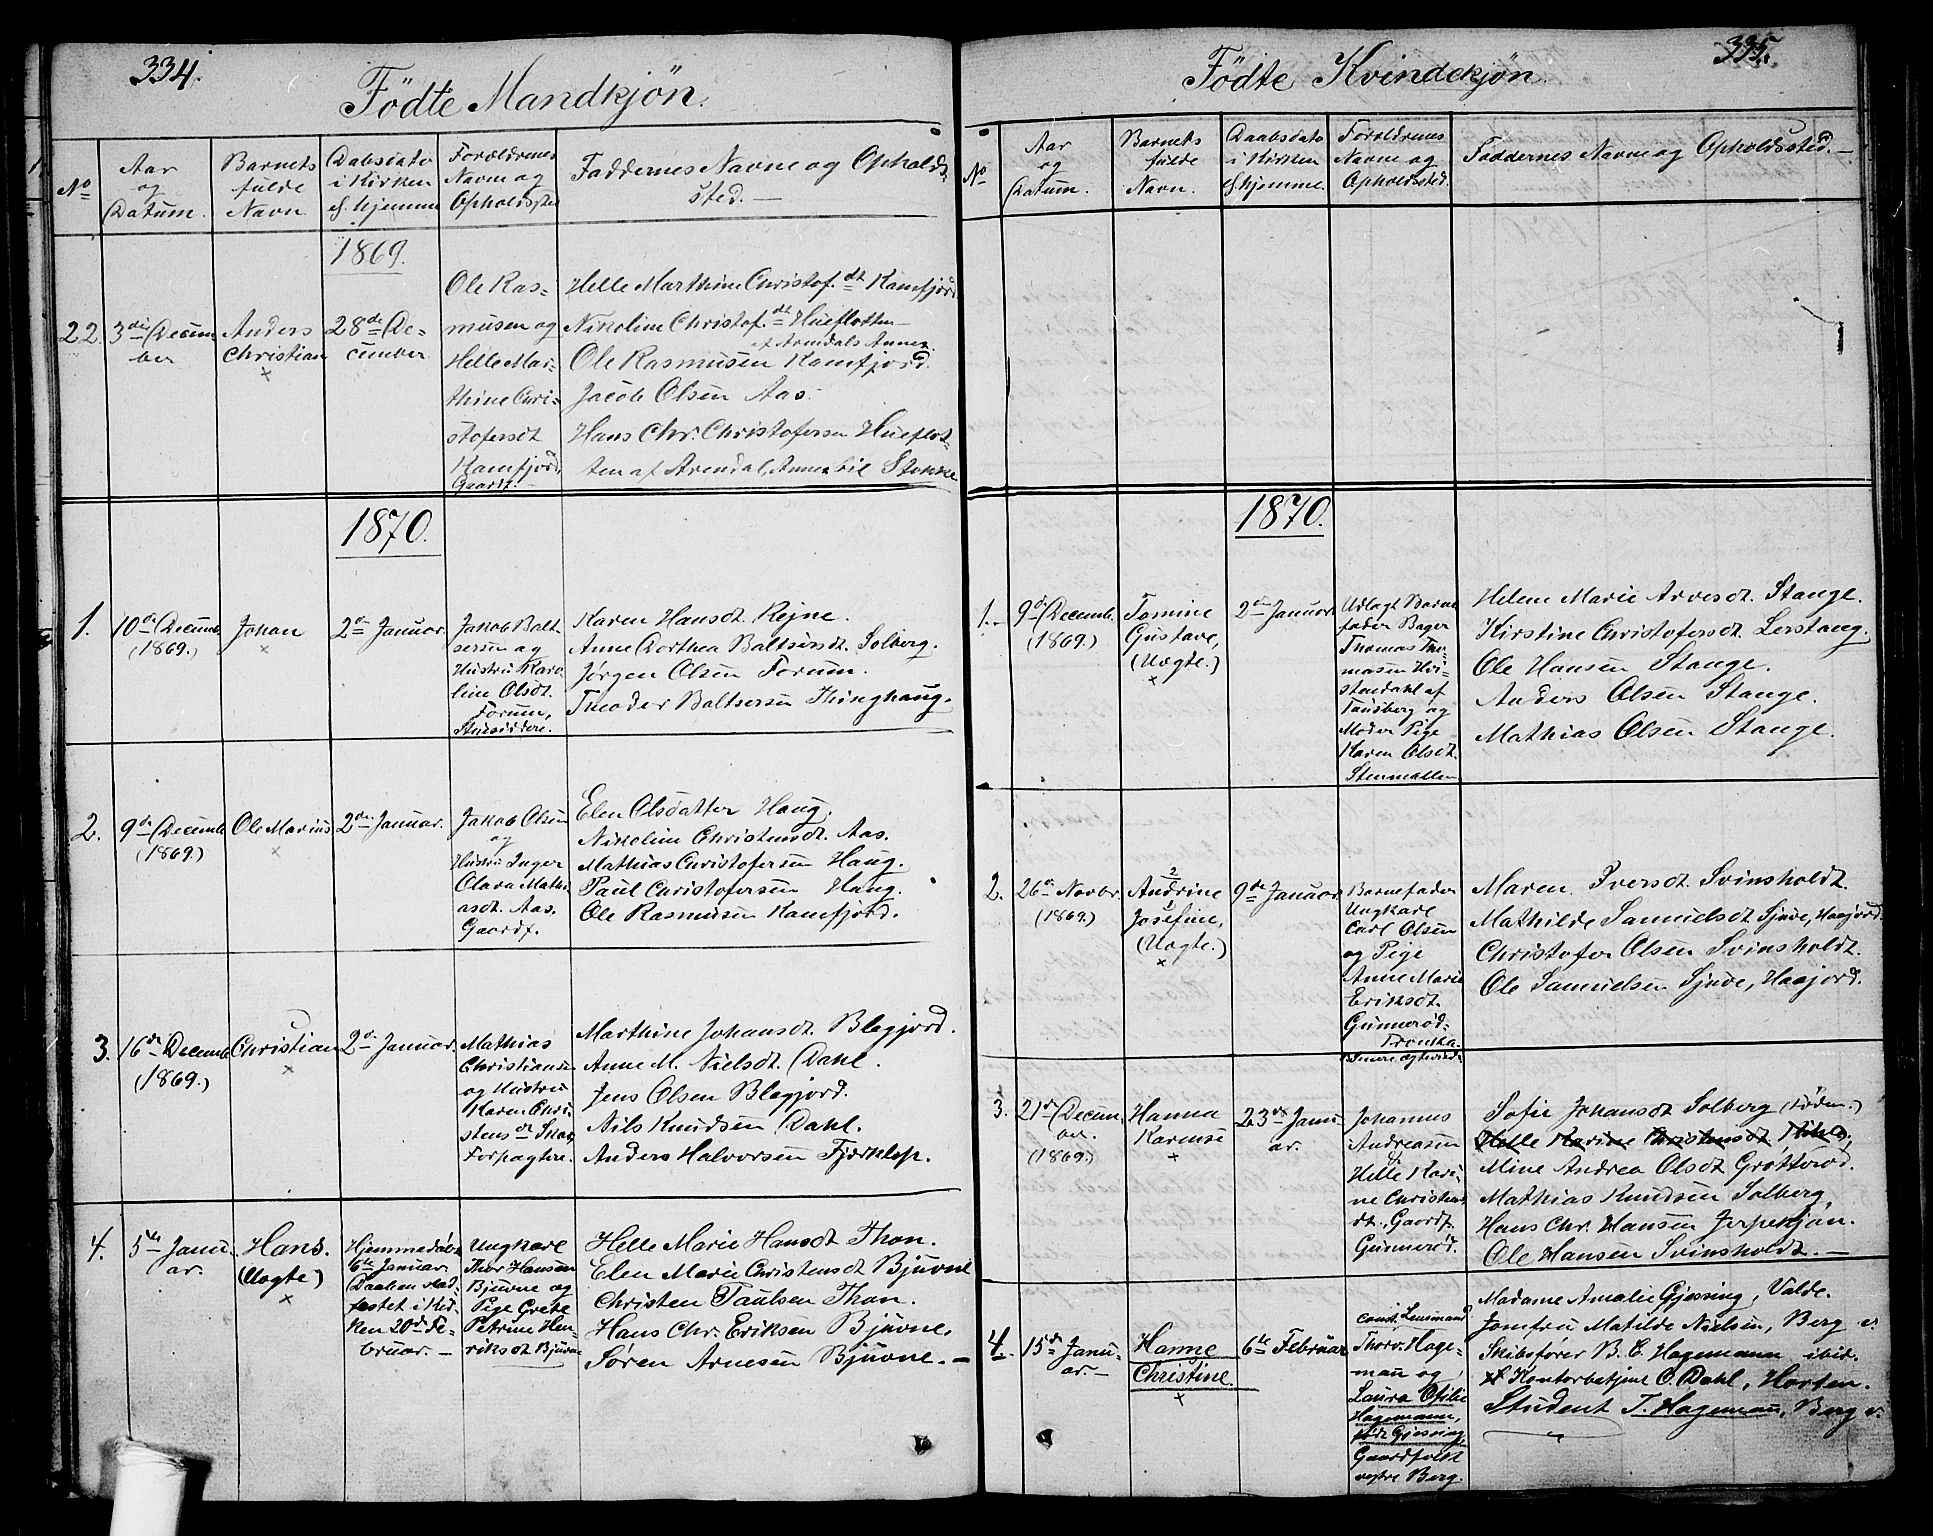 334.
Födte Mandkjön.
No
Aar
og
Datum.
Barnets
fulde
Navn
Dabsdato
i Kirken
el. hjemme
Forældrenes
Navne og
Opholdssted
Faddernes Navne og Opholds-
sted. —
1869.
22.
3die Decem-
ber
Anders
Christian
×
28de De-
cember
Ole Ras-
musen og
Helle Mar-
thine Chri-
stofersdt
Ramfjord,
Gaardf.
Helle Marthine Christof.dt Ramfjord
Nikoline Christof.dt Hueflotten
af Arendals Annex.
Ole Rasmusen Ramfjord.
Jacob Olsen Aas.
Hans Chr. Christofersen Hueflot-
ten af Arendal Annex til Stokke
1870.
1.
10de Decemb.
(1869.)
Johan
×
2de Januar.
Jakob Balt
sersen og
Hustru Karo-
line Olsdt.
Forum,
Huusiddere.
Karen Hansdt Rejne.
Anne Dorthea Baltsersdt. Solberg.
Jørgen Olsen Forum.
Theodor Baltsersen Thinghaug.
2.
9de Decemb.
(1869.)
Ole Marius
×
2den Januar.
Jakob Olsen
og
Hustru Inger
Olava Mathi-
asdt. Aas.
Gaardf.
Elen Olsdatter Haug.
Nikoline Christensdt. Aas.
Mathias Christofersen Haug.
Paul Christofersen Haug.
Ole Rasmusen Ramfjord.
3.
16de Decemb.
(1869.)
Christian
×
2de Januar.
Mathias
Christiansen
og Hustru
Karen Chri-
stensdt Skar,
Forpagtere.
Marthine Johansdt. Blegjord.
Anne M. Nielsdt. Dahl.
Jens Olsen Blegjord.
Nils Knudsen Dahl.
Anders Halvorsen Fjærklep.
4.
5te Janu-
ar.
Hans.
(Uægte)
×
Hjemmedøbt
6te Januar.
Daaben stad-
fæstet i Kir-
ken 20de Fe-
bruar. —
Ungkarl
Thor Hansen
Bjuvne og
Pige Grete
Petrine Hen-
riksdt Bjuvne
Helle Marie Hansdt Thon.
Elen Marie Christensdt Bjuvne
Christen Paulsen Thon.
Hans Chr. Eriksen Bjuvne.
Søren Arnesen Bjuvne. —
335.
Födte Kvindekjøn.
No
Aar
og
Datum.
Barnets
fulde
Navn.
Daabsdato
i Kirken
el. hjemme.
Forældrenes
Navne og
Opholdssted.
Faddernes Navne og Opholdssted. —
1870.
1.
9de Decemb.
(1869.)
Tomine
Gustave,
(Uægte.)
×
2den Januar.
Udlagt Barne
fader Bager
Thomas Tho-
masen Hvi-
stendahl af
Tønsberg og
Moder Pige
Karen Olsdt.
Stenmallen
Helene Marie Arvesdt. Stange.
Kirstine Christofersdt. Lerstang.
Ole Hansen Stange.
Anders Olsen Stange.
Mathias Olsen Stange.
2.
26de Novbr.
(1869.)
2
Andrine
1
Josefine,
(Uægte.)
×
9de Januar.
Barnefader
Ungkarl
Carl Olsen
og Pige
Anne Marie
Eriksdt.
Gunnerød.
Maren Iversdt. Svinsholdt.
Mathilde Samuelsdt Sjuve, Haajord.
Christofer Olsen Svinsholdt.
Ole Samuelsen Sjuve, Haajord.
3.
21de Decem-
ber.
(1869.)
Hanna
Karense
×
23de Janu-
ar.
Johannes
Andreasen
&
Helle Kari-
ne Christens
dt. Gaardf.
Gunnerød.
Sofie Johansdt Solberg (Föden.)
Helle Karine Christensdt
Mine Andrea Olsdt Grøtterød.
Mathias Knudsen Solberg
Hans Chr. Hansen Jerpekjøn.
Ole Hansen Svinsholdt. —
4.
15de Janu-
ar. —
Hanne
Christine.
×
6te Februar
const. Lensmand
Thorv. Hage-
man og
Laura Otilie
Hagemann,
født Gjessing,
Gaardfolk
vestre Berg.
Madame Amalie Gjessing, Valde.
Jomfru Matilde Nielsen, Berg v.
Skibsfører B. C. Hagemann ibid.
Kontorbetjent O. Dahl, Horten.
Student T. Hageman, Berg v.